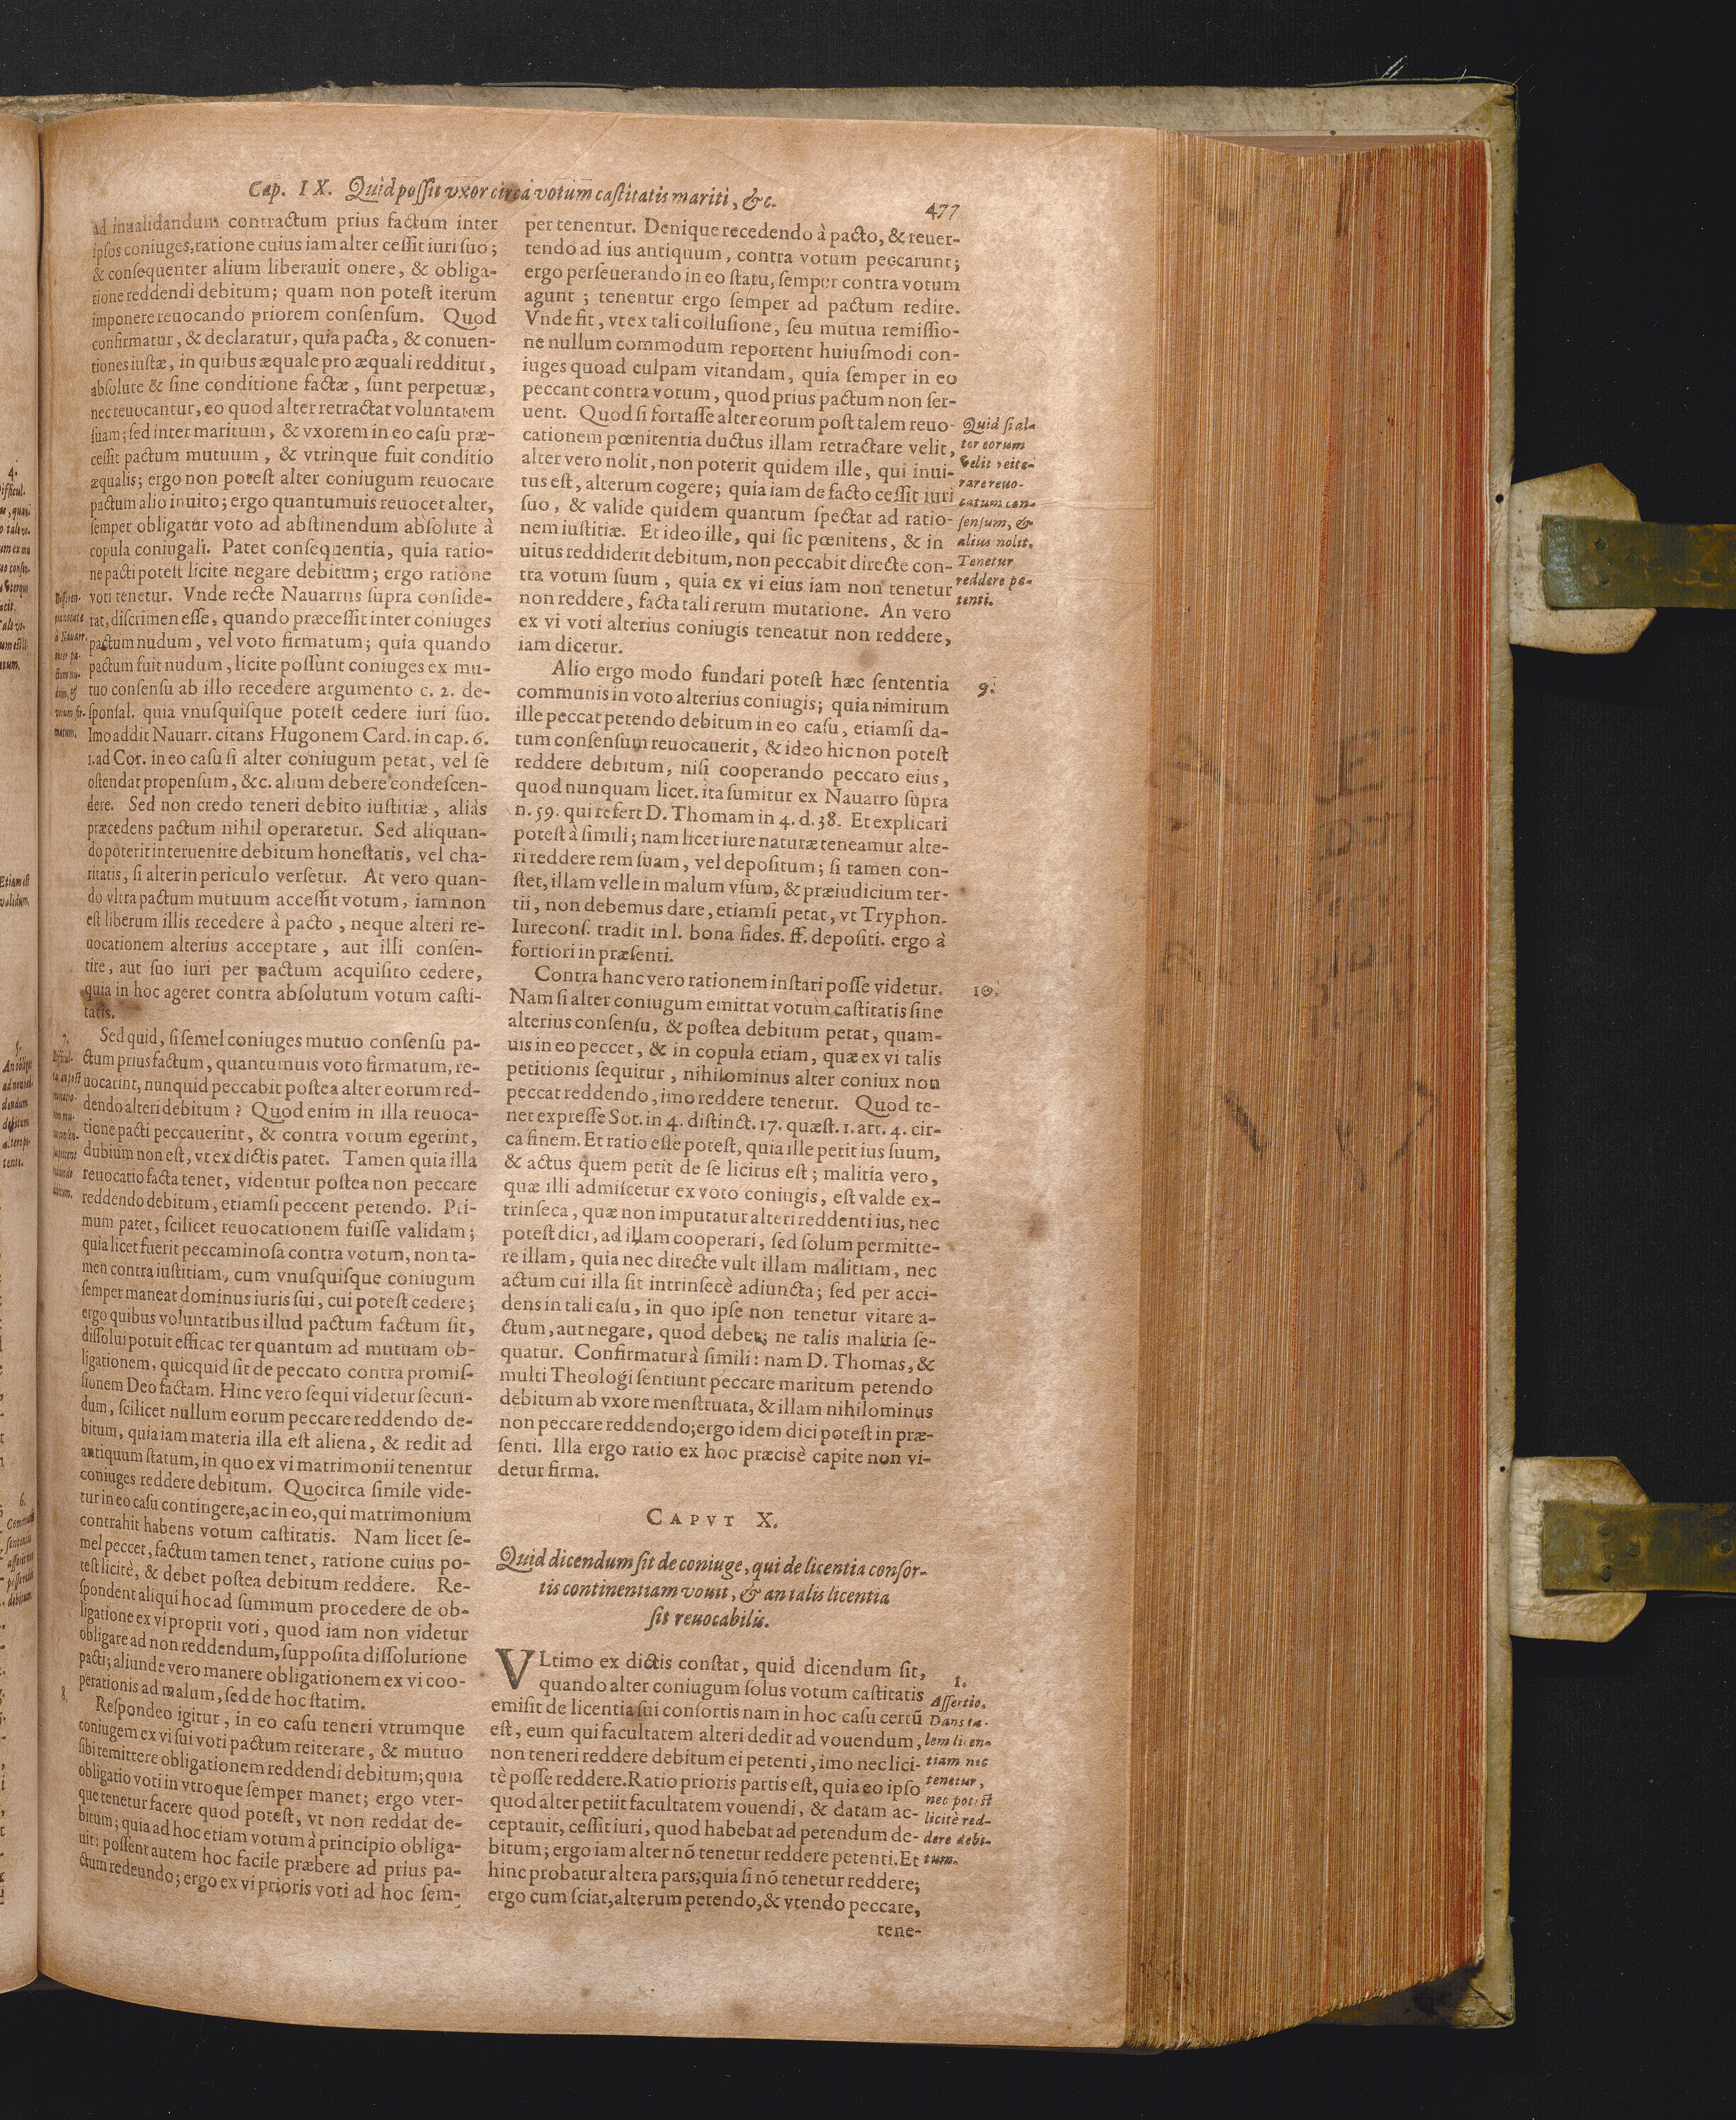 Cap. IX. Quid possit vxor circa votum castitatis mariti, &c.
477
ad inualidandum contractum prius factum inter
ipsos coniuges, ratione cuius iam alter cessit iuri suo;
& consequenter alium liberauit onere, & obliga-
tione reddendi debitum; quam non potest iterum
imponere reuocando priorem consensum. Quod
confirmatur, & declaratur, quia pacta, & conuen-
tiones iustæ, in quibus æquale pro æquali redditur,
absolute & sine conditione factæ, sunt perpetuæ,
nec reuocantur, eo quod alter retractat voluntatem
suam; sed inter maritum, & vxorem in eo casu præ-
cessit pactum mutuum, & vtrinque fuit conditio
æqualis; ergo non potest alter coniugum reuocare
pactum alio inuito; ergo quantumuis reuocet alter,
semper obligatur voto ad abstinendum absolute à
copula coniugali. Patet consequentia, quia ratio-
ne pacti potest licite negare debitum; ergo ratione
voti tenetur. Vnde recte Nauarrus supra conside-
rat, discrimen esse, quando præcessit inter coniuges
pactum nudum, vel voto firmatum; quia quando
pactum fuit nudum, licite possunt coniuges ex mu-
tuo consensu ab illo recedere argumento c. 2. de-
sponsal. quia vnusquisque potest cedere iuri suo.
Imo addit Nauarr. citans Hugonem Card. in cap. 6.
1. ad Cor. in eo casu si alter coniugum petat, vel se
ostendat propensum, &c. alium debere condescen-
dere. Sed non credo teneri debito iustitiæ, aliàs
præcedens pactum nihil operaretur. Sed aliquan-
do poterit interuenire debitum honestatis, vel cha-
ritatis, si alter in periculo versetur. At vero quan-
do vltra pactum mutuum accessit votum, iam non
est liberum illis recedere à pacto, neque alteri re-
uocationem alterius acceptare, aut illi consen-
tire, aut suo iuri per pactum acquisito cedere,
quia in hoc ageret contra absolutum votum casti-
tatis.
7.
Sed quid, si semel coniuges mutuo consensu pa-
ctum prius factum, quantumuis voto firmatum, re-
uocarint, nunquid peccabit postea alter eorum red-
dendo alteri debitum? Quod enim in illa reuoca-
tione pacti peccauerint, & contra votum egerint,
dubium non est, vt ex dictis patet. Tamen quia illa
reuocatio facta tenet, videntur postea non peccare
reddendo debitum, etiamsi peccent petendo. Pri-
mum patet, scilicet reuocationem fuisse validam;
quia licet fuerit peccaminosa contra votum, non ta-
men contra iustitiam, cum vnusquisque coniugum
semper maneat dominus iuris sui, cui potest cedere;
ergo quibus voluntatibus illud pactum factum sit,
dissolui potuit efficac ter quantum ad mutuam ob-
ligationem, quicquid sit de peccato contra promis-
sionem Deo factam. Hinc vero sequi videtur secun-
dum, scilicet nullum eorum peccare reddendo de-
bitum, quia iam materia illa est aliena, & redit ad
antiquum statum, in quo ex vi matrimonii tenentur
coniuges reddere debitum. Quocirca simile vide-
tur in eo casu contingere, ac in eo, qui matrimonium
contrahit habens votum castitatis. Nam licet se-
mel peccet, factum tamen tenet, ratione cuius po-
test licitè, & debet postea debitum reddere. Re-
spondent aliqui hoc ad summum procedere de ob-
ligatione ex vi proprii voti, quod iam non videtur
obligare ad non reddendum, supposita dissolutione
pacti; aliunde vero manere obligationem ex vi coo-
perationis ad malum, sed de hoc statim.
8.
Respondeo igitur, in eo casu teneri vtrumque
coniugem ex vi sui voti pactum reiterare, & mutuo
sibi remittere obligationem reddendi debitum; quia
obligatio voti in vtroque semper manet; ergo vter-
que tenetur facere quod potest, vt non reddat de-
bitum; quia ad hoc etiam votum à principio obliga-
uit: possent autem hoc facile præbere ad prius pa-
ctum redeundo; ergo ex vi prioris voti ad hoc sem-
per tenentur. Denique recedendo à pacto, & reuer-
tendo ad ius antiquum, contra votum peccarunt;
ergo perseuerando in eo statu, semper contra votum
agunt; tenentur ergo semper ad pactum redire.
Vnde fit, vt ex tali collusione, seu mutua remissio-
ne nullum commodum reportent huiusmodi con-
iuges quoad culpam vitandam, quia semper in eo
peccant contra votum, quod prius pactum non ser-
uent. Quod si fortasse alter eorum post talem reuo-
cationem pœnitentia ductus illam retractare velit,
alter vero nolit, non poterit quidem ille, qui inui-
tus est, alterum cogere; quia iam de facto cessit iuri
suo, & valide quidem quantum spectat ad ratio-
nem iustitiæ. Et ideo ille, qui sic pœnitens, & in
uitus reddiderit debitum, non peccabit directe con-
tra votum suum, quia ex vi eius iam non tenetur
non reddere, facta tali rerum mutatione. An vero
ex vi voti alterius coniugis teneatur non reddere,
iam dicetur.
Quid si al-
ter eorum
velit reite-
rare reuo-
catum con-
sensum, &
alius nolit.
Tenetur
reddere pe-
tenti.
9.
Alio ergo modo fundari potest hæc sententia
communis in voto alterius coniugis; quia nimirum
ille peccat petendo debitum in eo casu, etiamsi da-
tum consensum reuocauerit, & ideo hic non potest
reddere debitum, nisi cooperando peccato eius,
quod nunquam licet. ita sumitur ex Nauarro supra
n. 59. qui refert D. Thomam in 4. d. 38. Et explicari
potest à simili; nam licet iure naturæ teneamur alte-
ri reddere rem suam, vel depositum; si tamen con-
stet, illam velle in malum vsum, & præiudicium ter-
tii, non debemus dare, etiamsi petat, vt Tryphon.
Iurecons. tradit in l. bona fides. ff. depositi. ergo à
fortiori in præsenti.
10.
Contra hanc vero rationem instari posse videtur.
Nam si alter coniugum emittat votum castitatis sine
alterius consensu, & postea debitum petat, quam-
uis in eo peccet, & in copula etiam, quæ ex vi talis
petitionis sequitur, nihilominus alter coniux non
peccat reddendo, imo reddere tenetur. Quod te-
net expresse Sot. in 4. distinct. 17. quæst. 1. art. 4. cir-
ca finem. Et ratio esse potest, quia ille petit ius suum,
& actus quem petit de se licitus est; malitia vero,
quæ illi admiscetur ex voto coniugis, est valde ex-
trinseca, quæ non imputatur alteri reddenti ius, nec
potest dici, ad illam cooperari, sed solum permitte-
re illam, quia nec directe vult illam malitiam, nec
actum cui illa sit intrinsecè adiuncta; sed per acci-
dens in tali casu, in quo ipse non tenetur vitare a-
ctum, aut negare, quod debet; ne talis malitia se-
quatur. Confirmatur à simili: nam D. Thomas, &
multi Theologi sentiunt peccare maritum petendo
debitum ab vxore menstruata, & illam nihilominus
non peccare reddendo; ergo idem dici potest in præ-
senti. Illa ergo ratio ex hoc præcisè capite non vi-
detur firma.
CAPVT X.
Quid dicendum sit de coniuge, qui de licentia consor-
tis continentiam vouit, & an talis licentia
sit reuocabilis.
VLtimo ex dictis constat, quid dicendum sit,
quando alter coniugum solus votum castitatis
emisit de licentia sui consortis nam in hoc casu certũ
est, eum qui facultatem alteri dedit ad vouendum,
non teneri reddere debitum ei petenti, imo nec lici-
tè posse reddere. Ratio prioris partis est, quia eo ipso
quod alter petiit facultatem vouendi, & datam ac-
ceptauit, cessit iuri, quod habebat ad petendum de-
bitum; ergo iam alter nõ tenetur reddere petenti. Et
hinc probatur altera pars; quia si nõ tenetur reddere;
ergo cum sciat, alterum petendo, & vtendo peccare,
1.
Assertio.
Dans ta-
lem licen-
tiam nec
tenetur,
nec potest
licitè red-
dere debi-
tum.
tene-